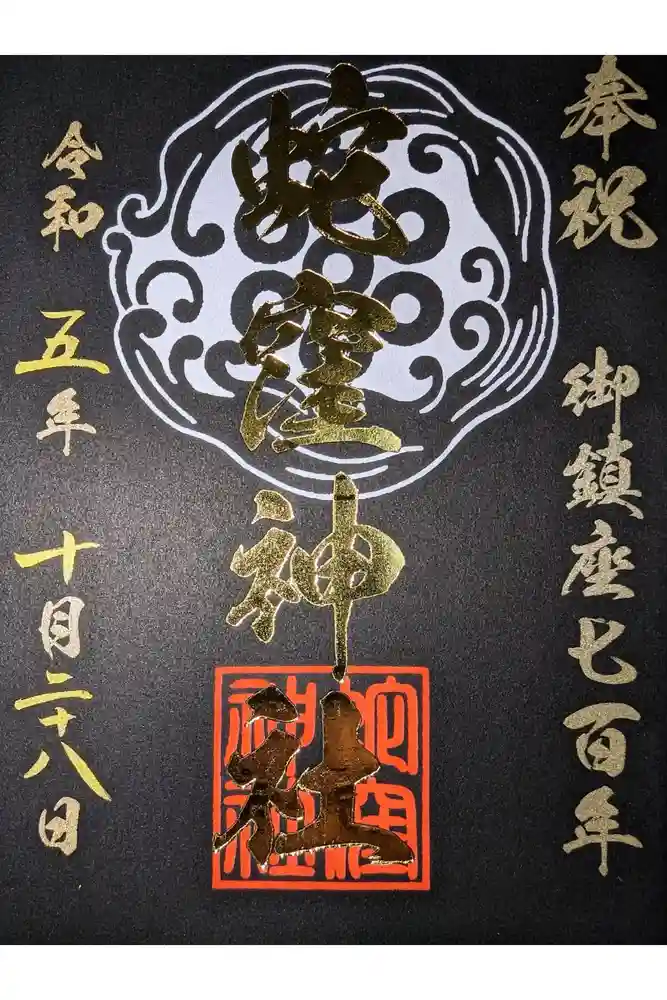 奉祝 御鎮座七百年
蛇窪神社
蛇窪
神社
令和 五年 十月二十八日